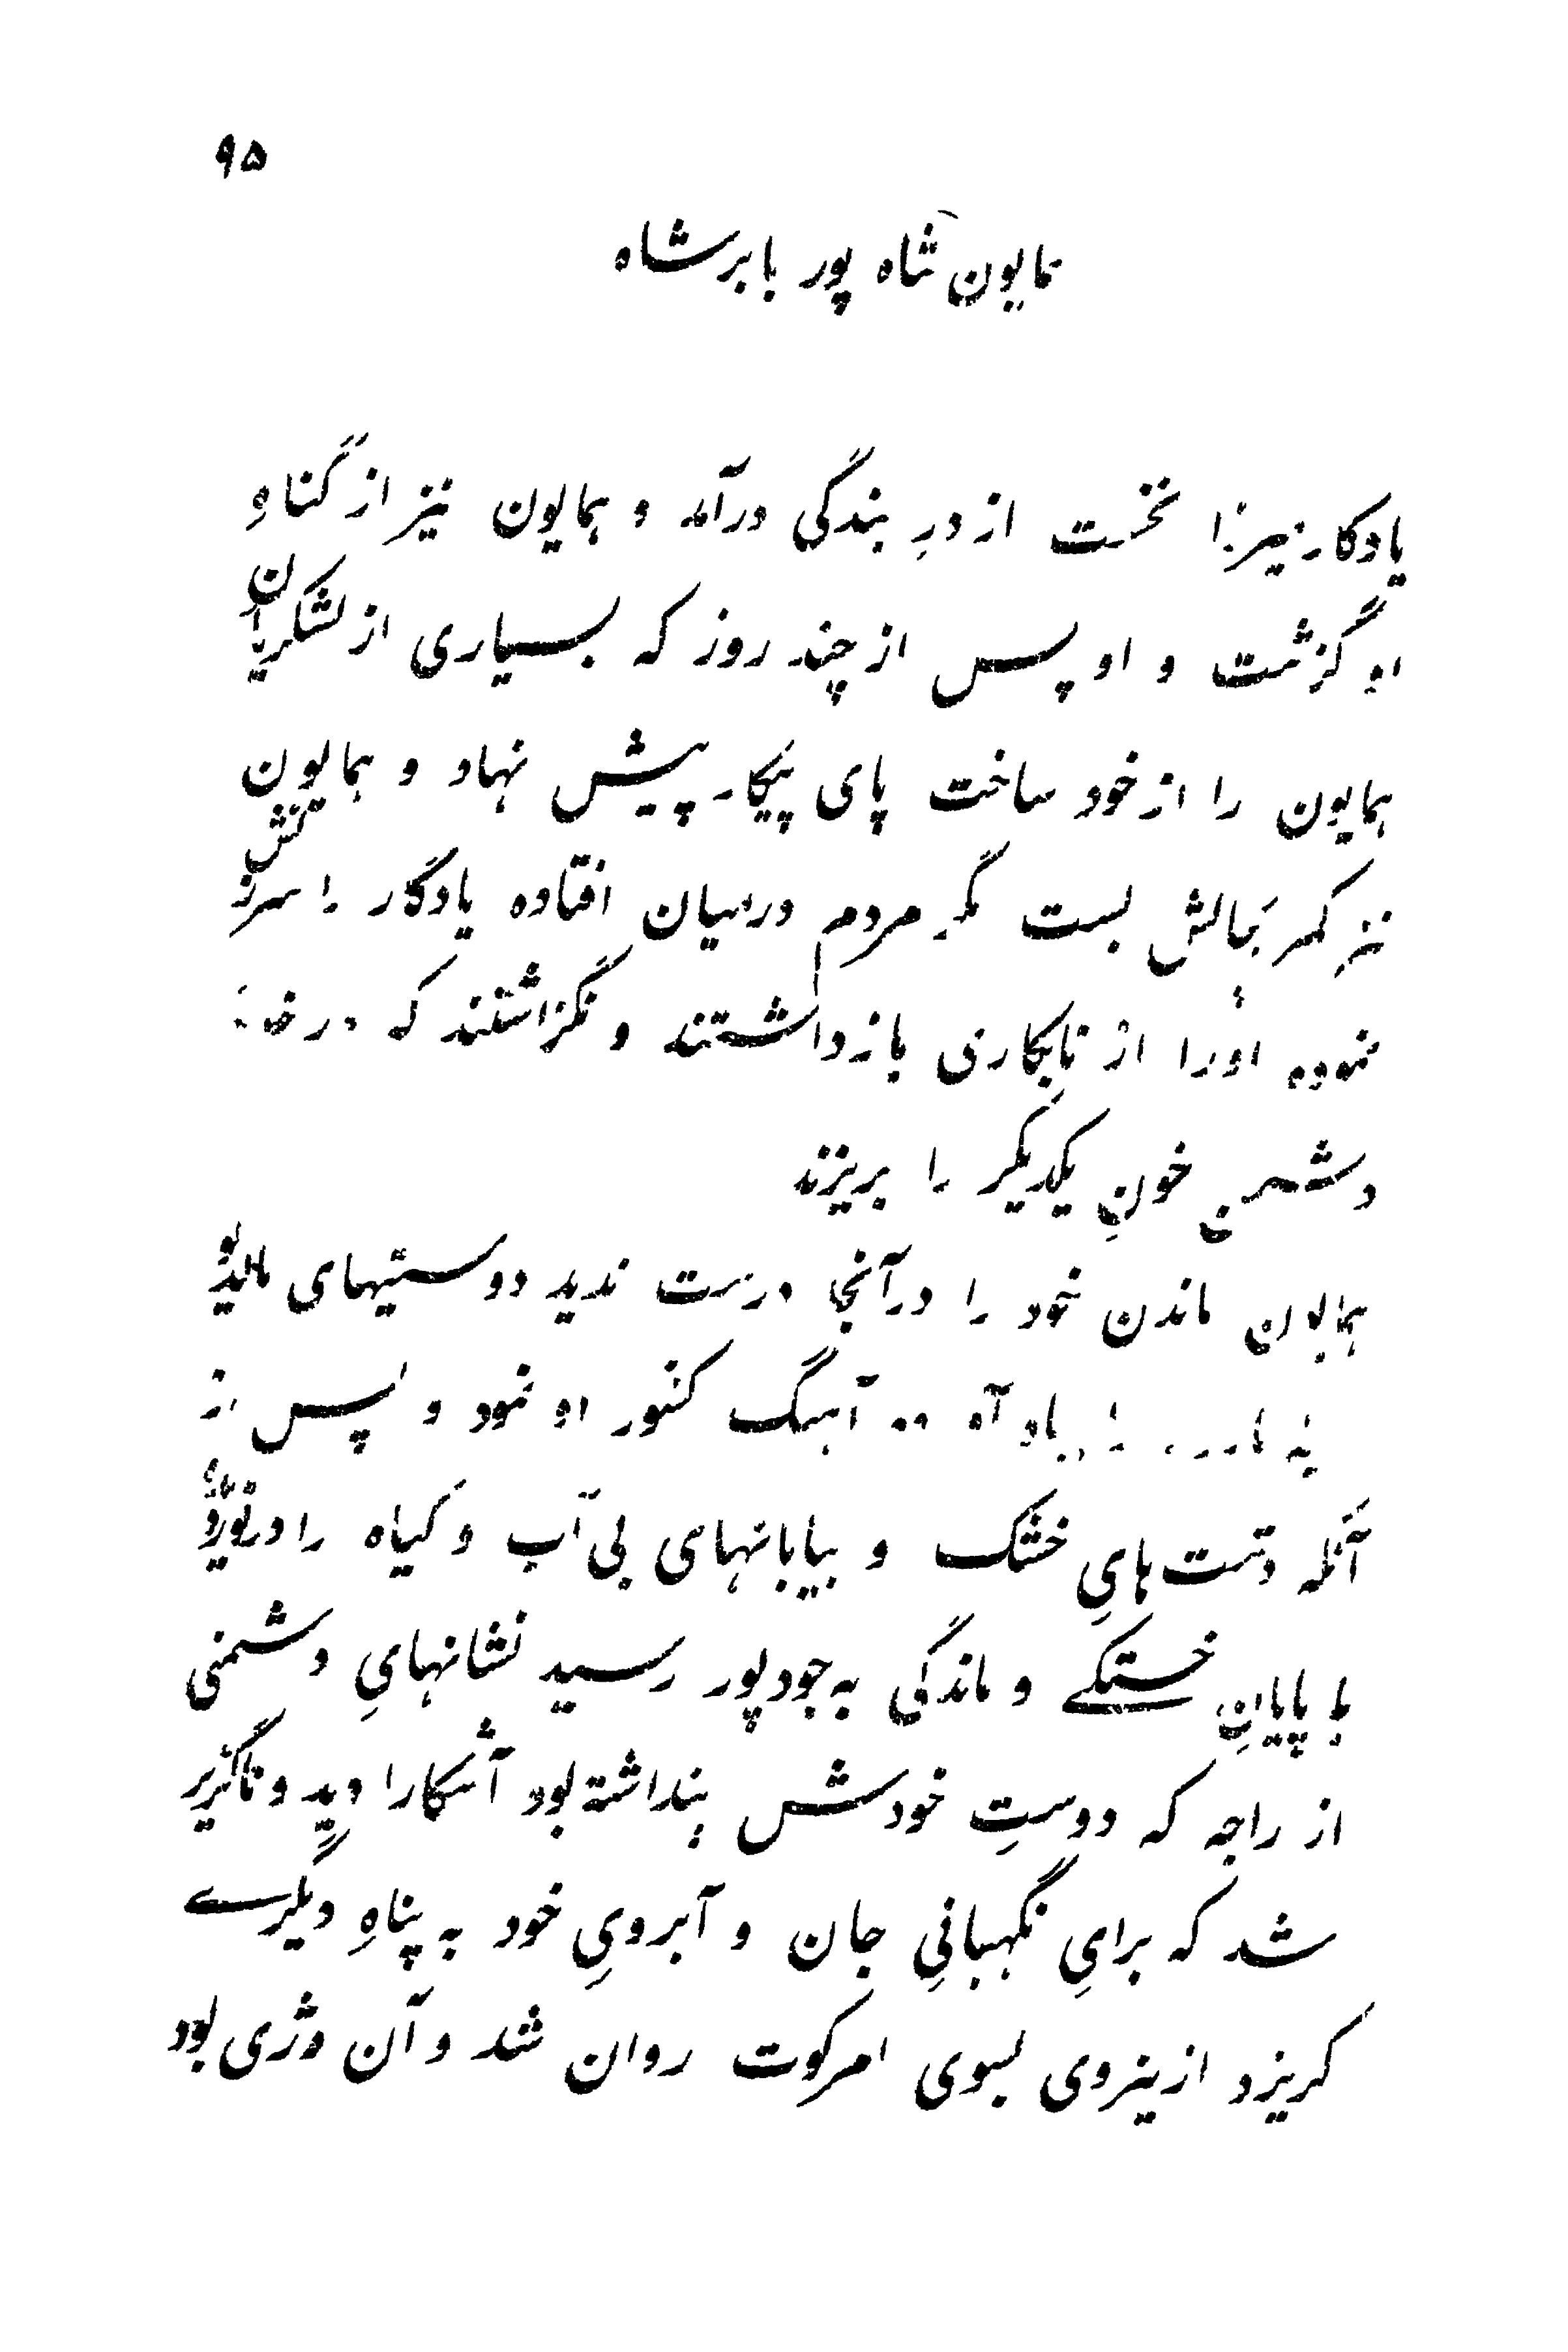 ۹۵
همایون شاه پور بابر شاه
یادگار میرزا نخست از درِ بندگی درآمد و همایون نیز از گناهِ
او گزشت و او پس از چند روز که بسیاری از لشکریان
همایون را از خود ساخت پای پیکار پیش نهاد و همایون
نیز کمر بمالش بست مگر مردم درمیان افتاده یادگار را سرزنش
نموده او را از نابکاری بازداشتند و نگزاشتند که در
دشمن خونِ یکدیگر را بریزند
همایون ماندن خود را در آنجا درست ندید دوستیهای مالدیو
را آهنگ کشور او نمود و پس از
آنکه دشت هایِ خشک و بیابانهای بی آب و گیاه را درنوردید
با پایانِ خستگے و ماندگی به جودپور رسید نشانهایِ دشمنی
از راجه که دوستِ خودش پنداشته بود آشکارا دید و ناگزیر
شد که برایِ نگهبانیِ جان و آبرویِ خود به پناهِ دیگرے
گریزد ازینروی بسوی امرکوت روان شد و آن دژی بود